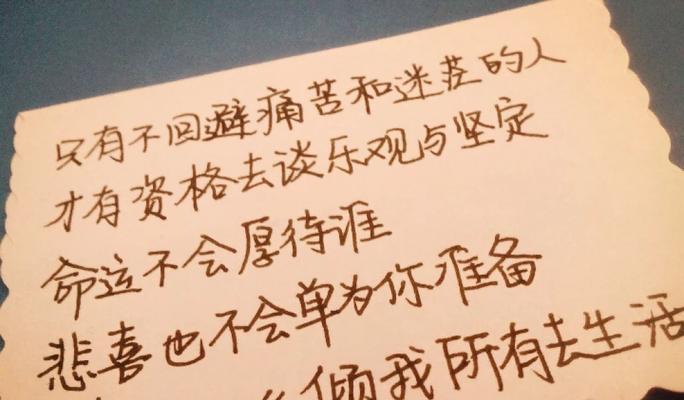 只有不回避痛苦和迷茫的人
才有资格去谈乐观与坚定
命运不会厚待谁
悲喜也不会单为你准备
倾我所有去生活